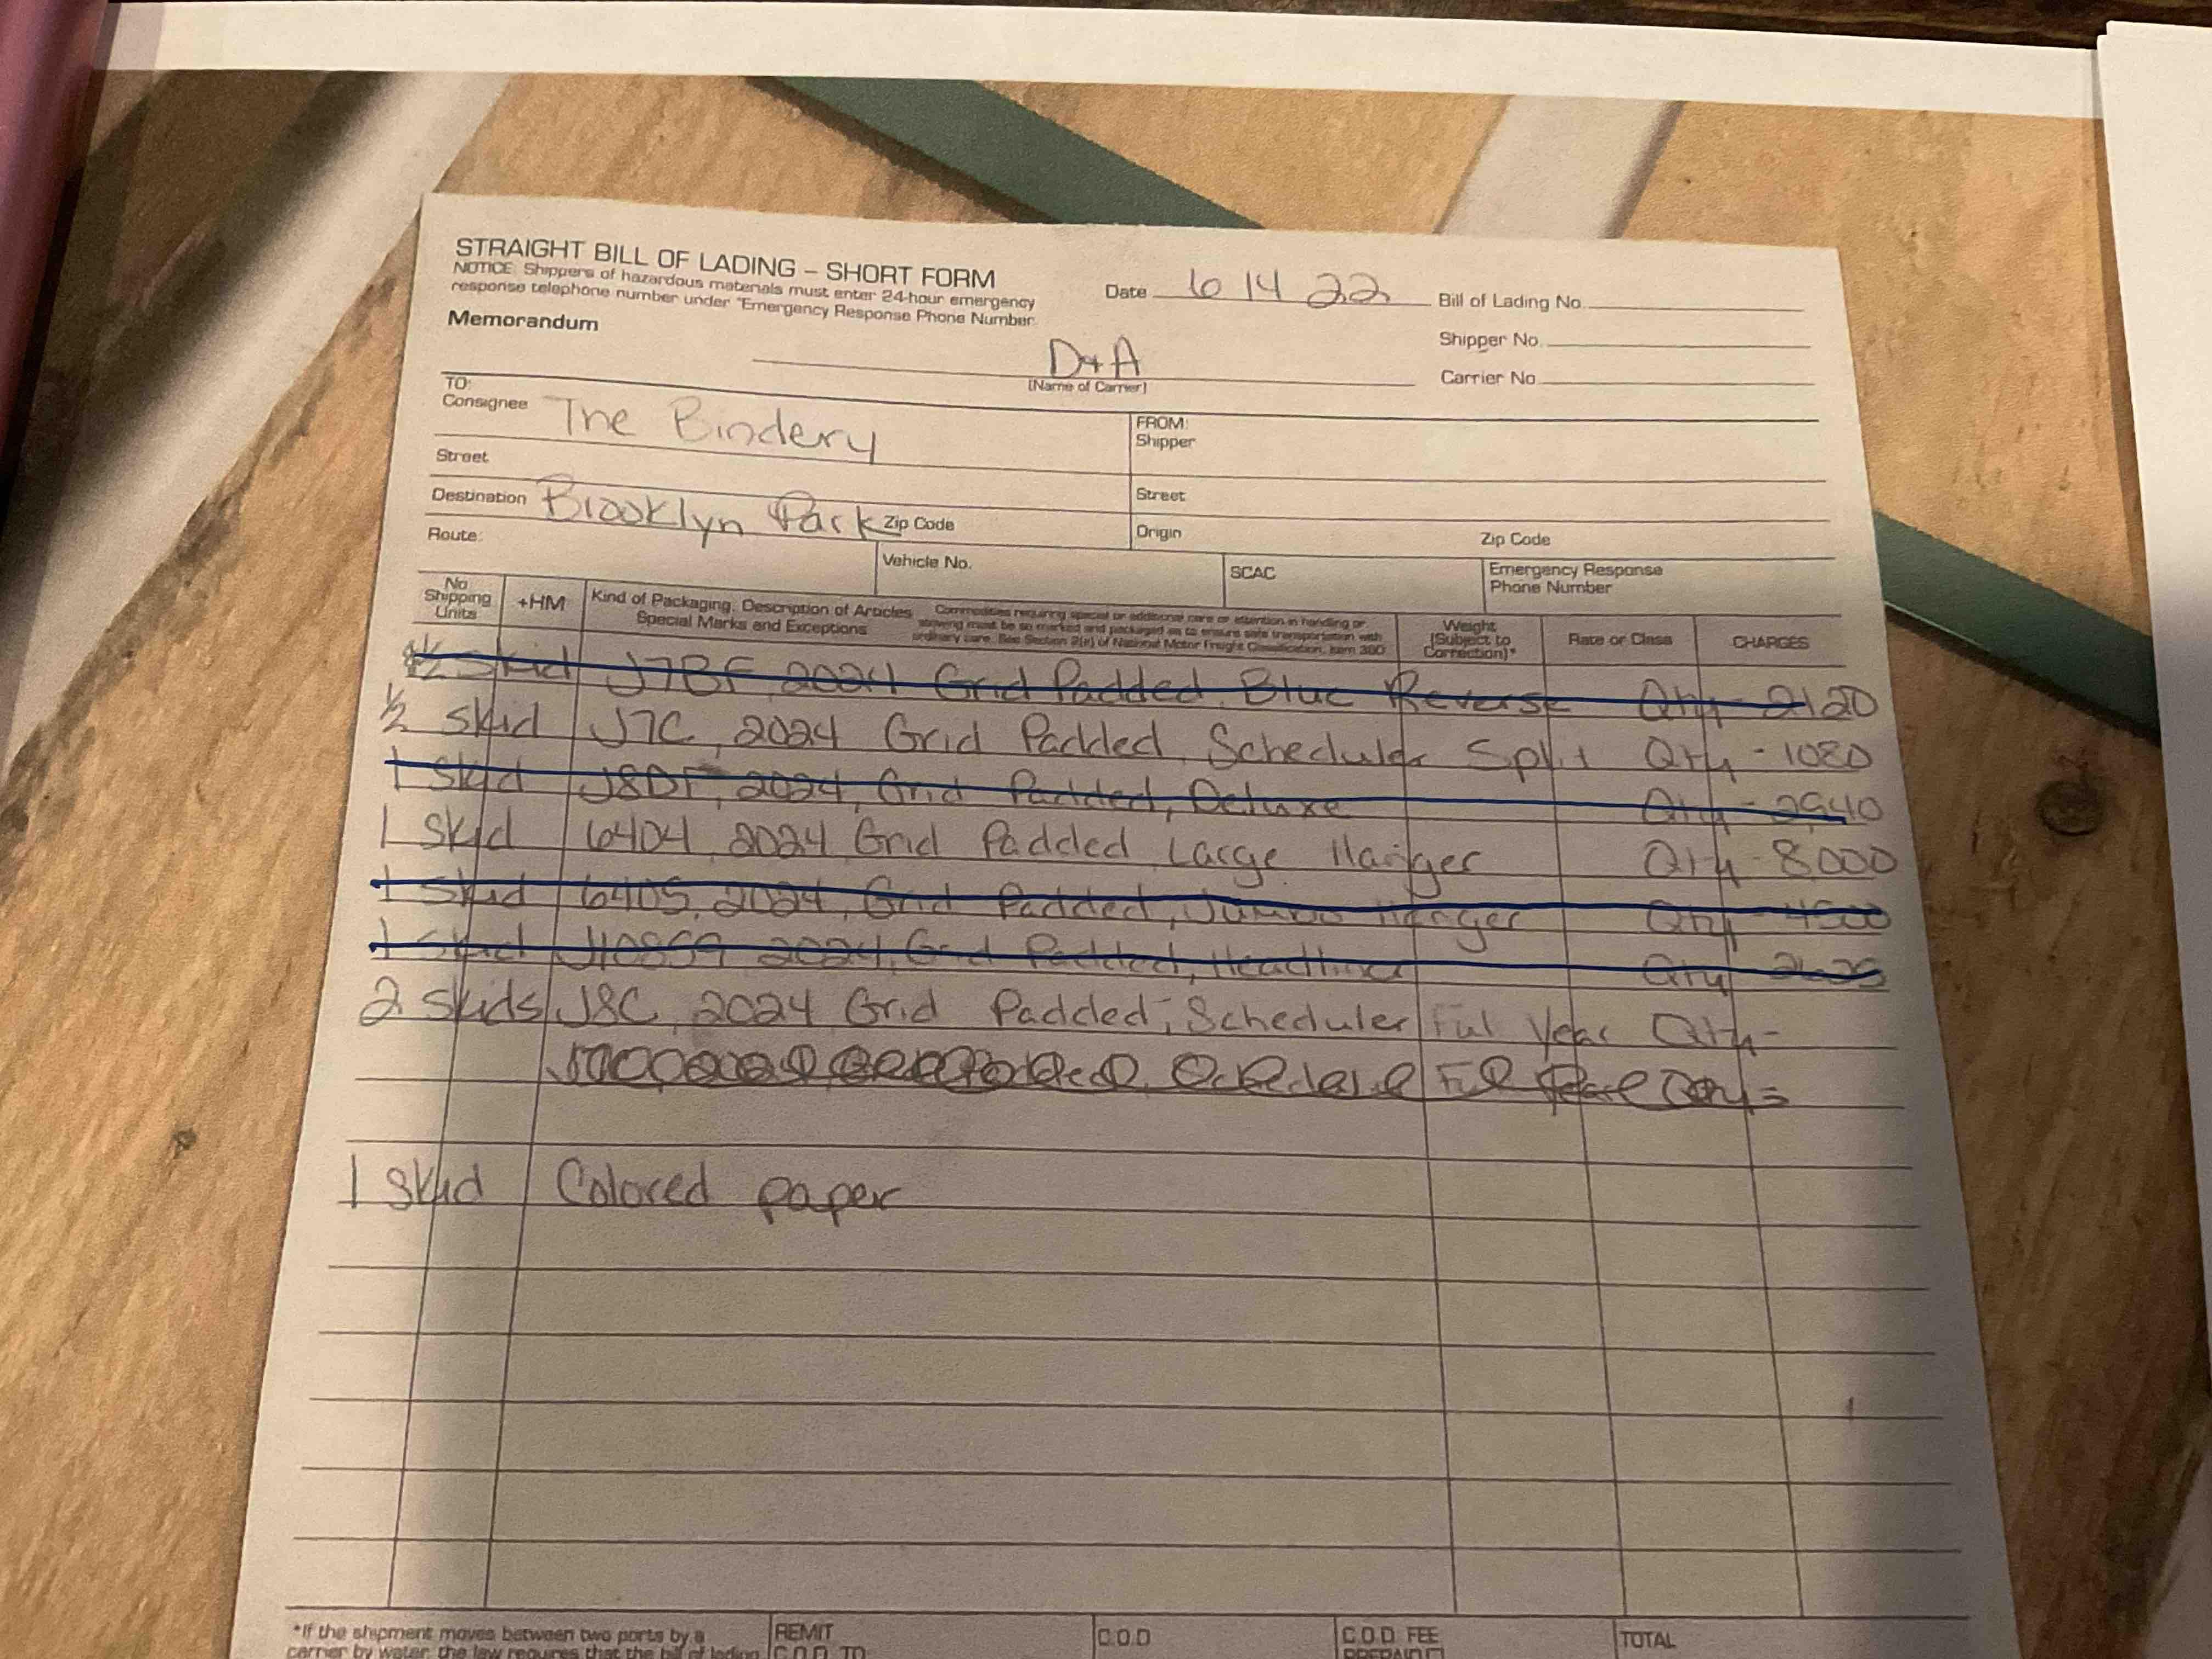 STRAIGHT BILL OF LADING – SHORT FORM
NOTICE: Shippers of hazardous materials must enter 24-hour emergency
response telephone number under "Emergency Response Phone Number.
Memorandum
Date 6 14 22
Bill of Lading No.
Shipper No.
Carrier No.
D+A
(Name of Carrier)
TO:
Consignee The Bindery
FROM:
Shipper
Street
Street
Destination Brooklyn Park Zip Code
Origin Zip Code
Route:
Vehicle No.
SCAC
Emergency Response
Phone Number
No.
Shipping
Units
+HM
Kind of Packaging, Description of Articles
Special Marks and Exceptions
Commodities requiring special or additional care or attention in handling or
stowing must be so marked and packaged as to ensure safe transportation with
ordinary care. See Section 2(e) of National Motor Freight Classification, Item 360
Weight
(Subject to
Correction)*
Rate or Class
CHARGES
1/2 skid J7BF, 2024 Grid Padded, Blue Reverse Qty - 2120
1/2 skid J7C, 2024 Grid Padded, Scheduler Split Qty - 1080
1 skid J8DF, 2024, Grid Padded, Deluxe Qty - 2940
1 skid 6404, 2024 Grid Padded, Large Hanger Qty - 8000
1 skid 6405, 2024, Grid Padded, Jumbo Hanger Qty - 4500
1 skid 2024, Grid Padded, Qty 2625
2 skids J8C, 2024 Grid Padded, Scheduler Full Year Qty-
1 skid Colored paper
*If the shipment moves between two ports by a
carrier by water, the law requires that the bill of lading
REMIT
C.O.D. TO
C.O.D
C.O.D. FEE
PREPAID
TOTAL